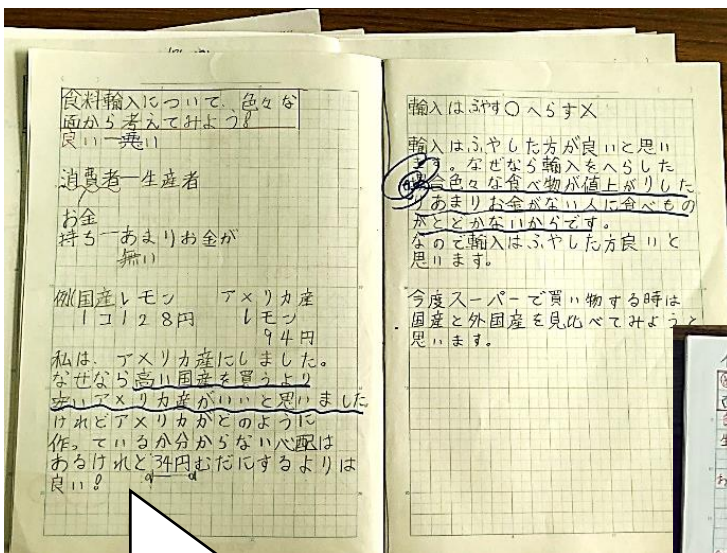 食料輸入について、色々な
面から考えてみよう!
良い―悪い
消費者―生産者
お金
持ち―あまりお金が
無い
例 国産レモン アメリカ産
1コ128円 レモン
94円
私は、アメリカ産にしました。
なぜなら高い国産を買うより
安いアメリカ産がいいと思いました
けれどアメリカがどのように
作っているか分からない心配は
あるけれど34円むだにするよりは
良い!
輸入はふやす○へらす×
輸入はふやした方が良いと思い
ます。なぜなら輸入をへらした
場合色々な食べ物が値上がりした
りあまりお金がない人に食べもの
がとどかないからです。
なので輸入はふやした方良いと
思います。
今度スーパーで買い物する時は
国産と外国産を見比べてみようと
思います。